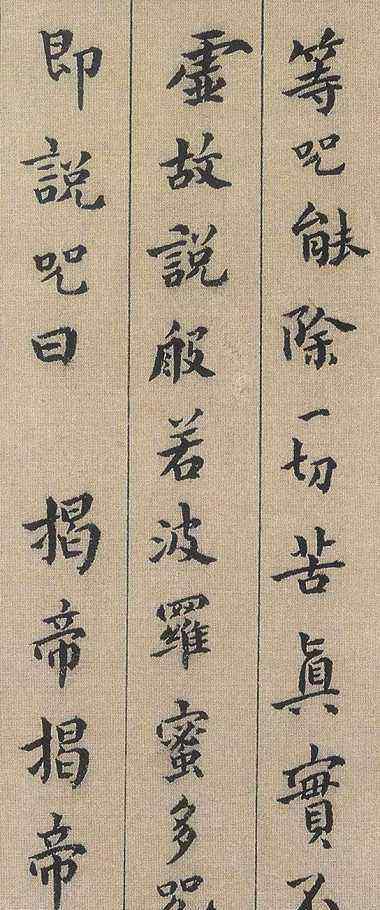 等咒能除一切苦真實不
虛故說般若波羅蜜多咒
即說咒曰 揭帝揭帝